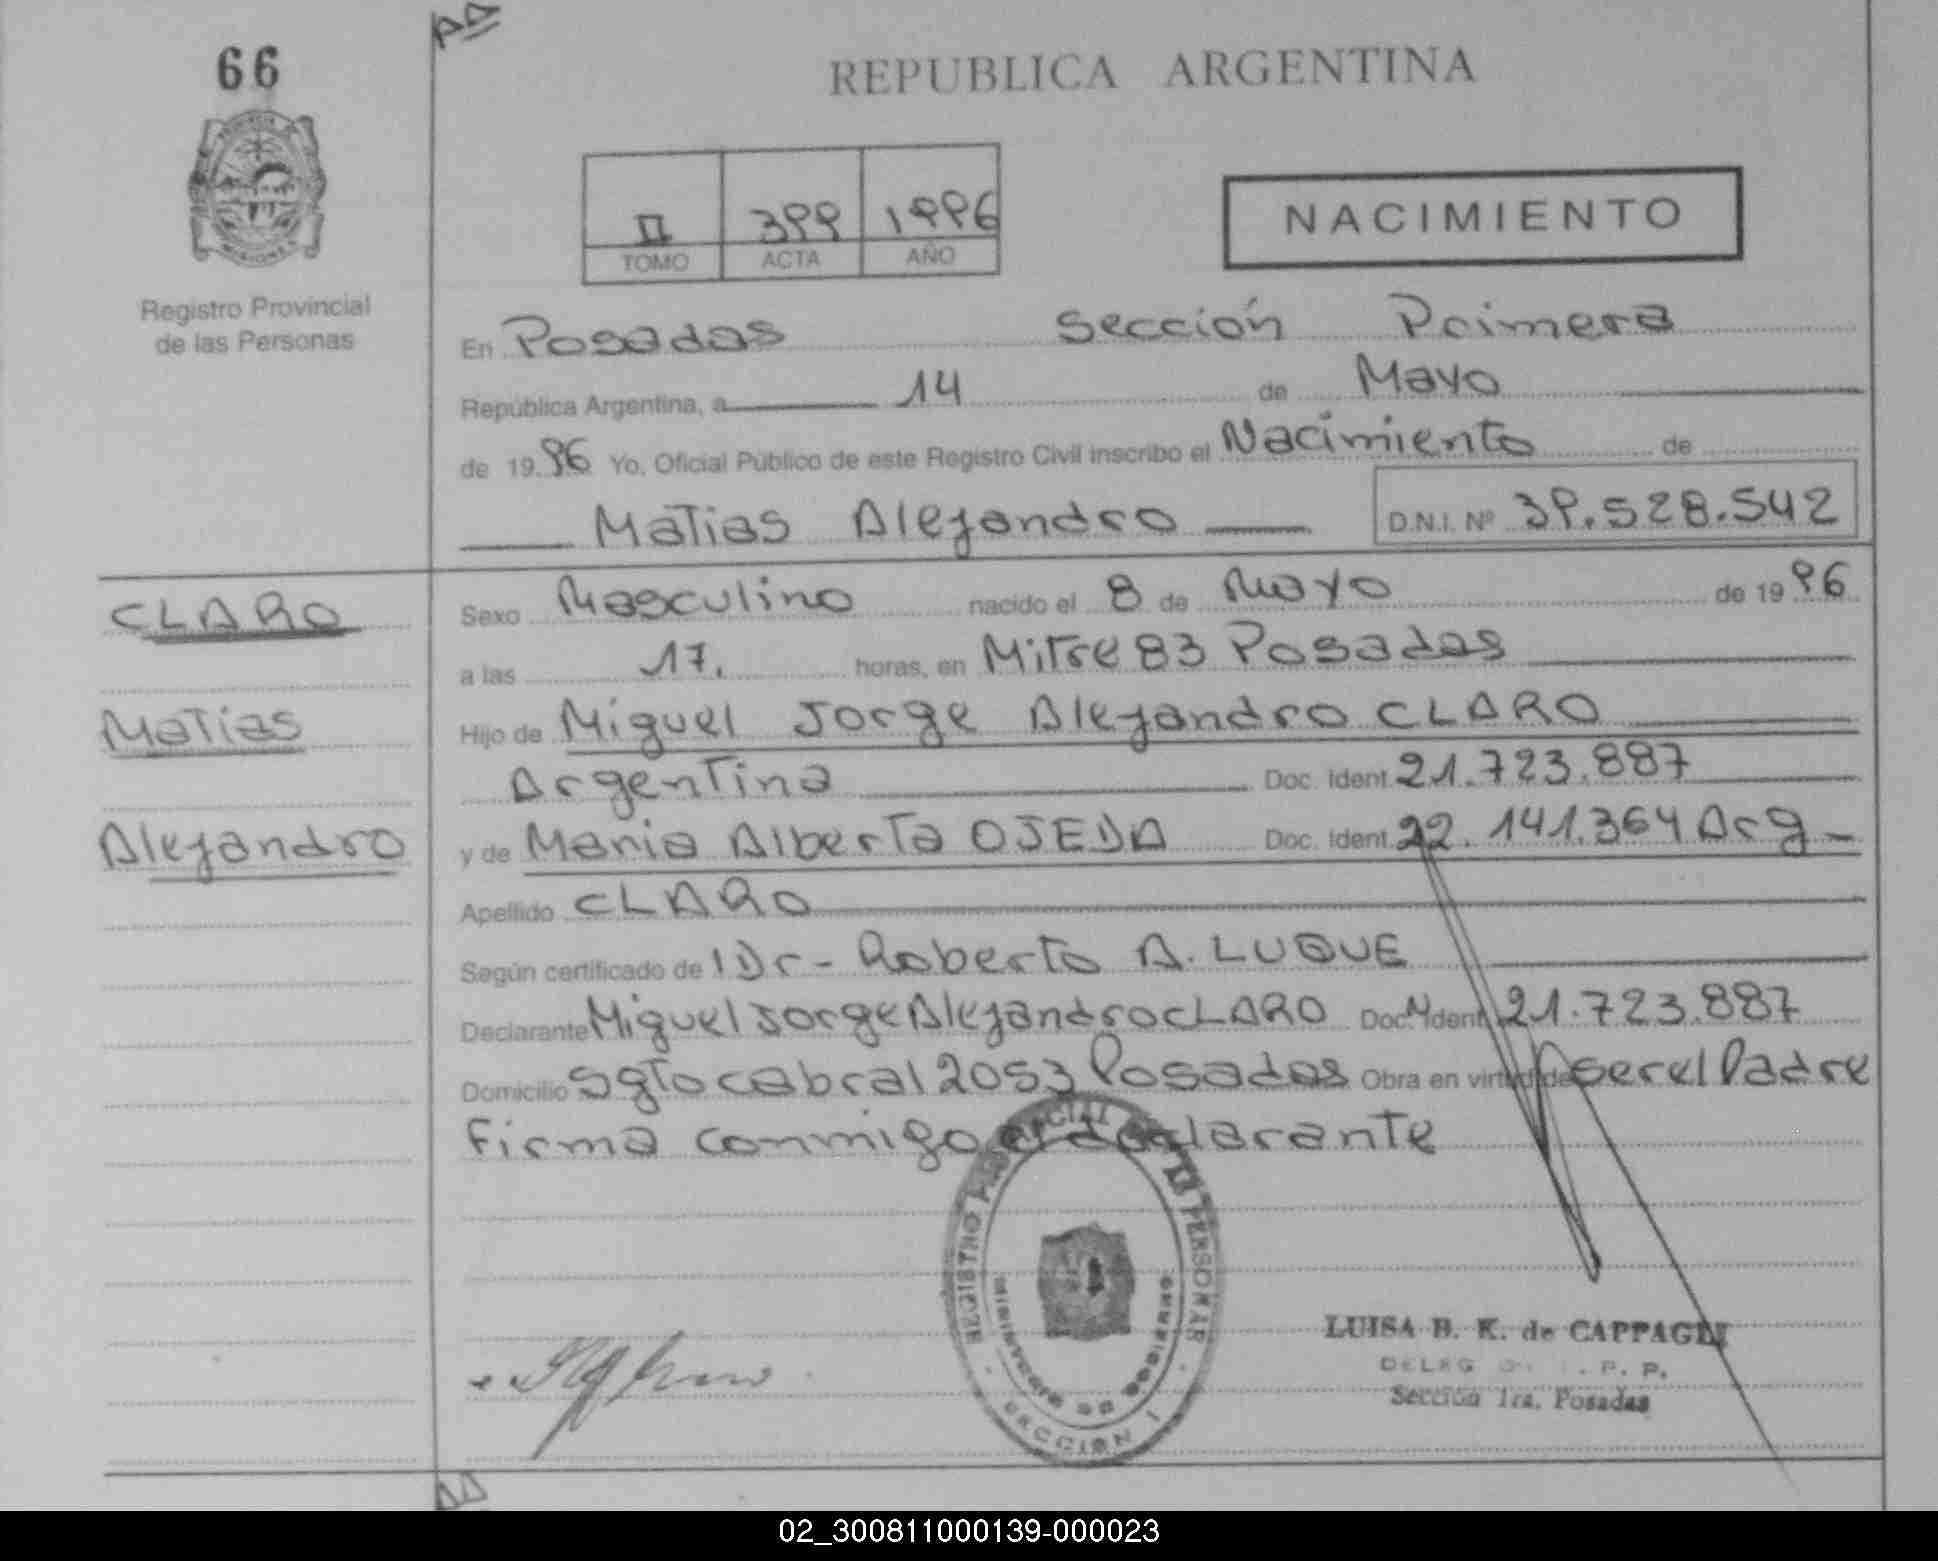 66
REPUBLICA ARGENTINA
II 399 1996
TOMO ACTA AÑO
NACIMIENTO
Registro Provincial
de las Personas
En Posadas Sección Primera
República Argentina, a 14 de Mayo
de 19 96 Yo, Oficial Público de este Registro Civil inscribo el Nacimiento de
Matias Alejandro D.N.I. Nº 39.528.542
CLARO
Matias
Alejandro
Sexo Masculino nacido el 8 de Mayo de 19 96
a las 17. horas, en Mitre 83 Posadas
Hijo de Miguel Jorge Alejandro CLARO
Argentina Doc. Ident. 21.723.887
y de Maria Alberta OJEDA Doc. Ident. 22.141.364 Arg
Apellido CLARO
Según certificado de l Dr- Roberto A. LUQUE
Declarante Miguel Jorge Alejandro CLARO Doc. Ident. 21.723.887
Domicilio Sgto cabral 2053 Posadas Obra en virtud de ser el Padre
Firma conmigo el declarante
LUISA B. K. de CAPPAGLI
Sección 1ra. Posadas
SECCION 1
02_300811000139-000023